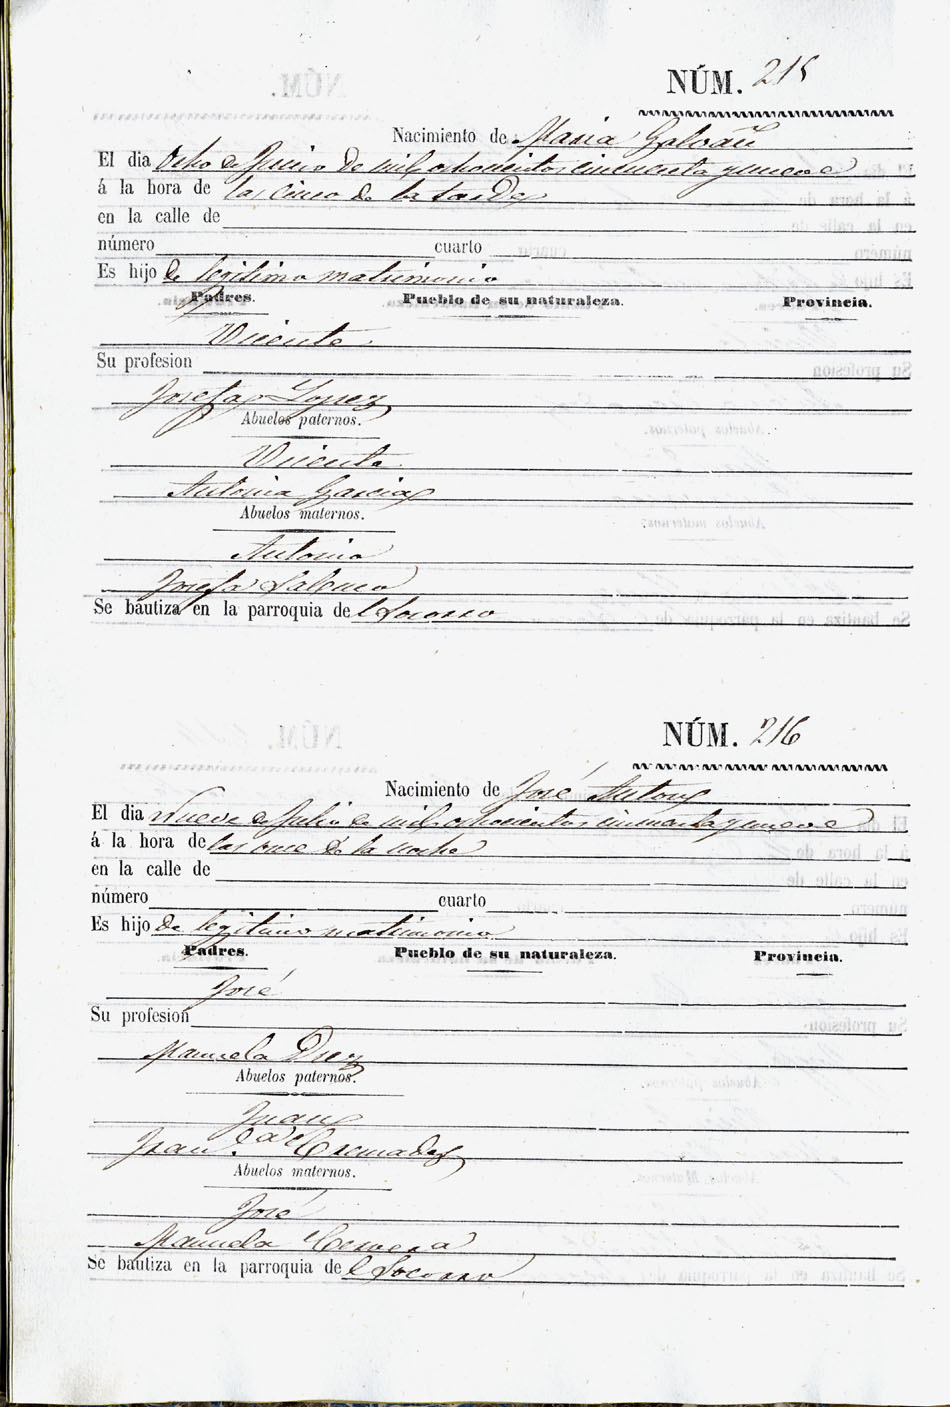 NÚM. 215
Nacimiento de Maria Galvañ
El dia Ocho de Junio de mil ochocientos cincuenta y nueve
á la hora de las cinco de la tarde
en la calle de
número cuarto
Es hijo de legitimo matrimonio
Padres. Pueblo de su naturaleza. Provincia.
Vicente
Su profesion
Josefa Lopez
Abuelos paternos.
Vicente
Antonia Garcia
Abuelos maternos.
Antonio
Josefa
Se bautiza en la parroquia de el Socorro
NÚM. 216
Nacimiento de José Antony
El dia Nueve de Julio de mil ochocientos cincuenta y nueve
á la hora de las once de la noche
en la calle de
número cuarto
Es hijo de legitimo matrimonio
Padres. Pueblo de su naturaleza. Provincia.
José
Su profesion
Manuela Diez
Abuelos paternos.
Juan
Fran.ca Cremades
Abuelos maternos.
José
Manuela Cervera
Se bautiza en la parroquia de el Socorro